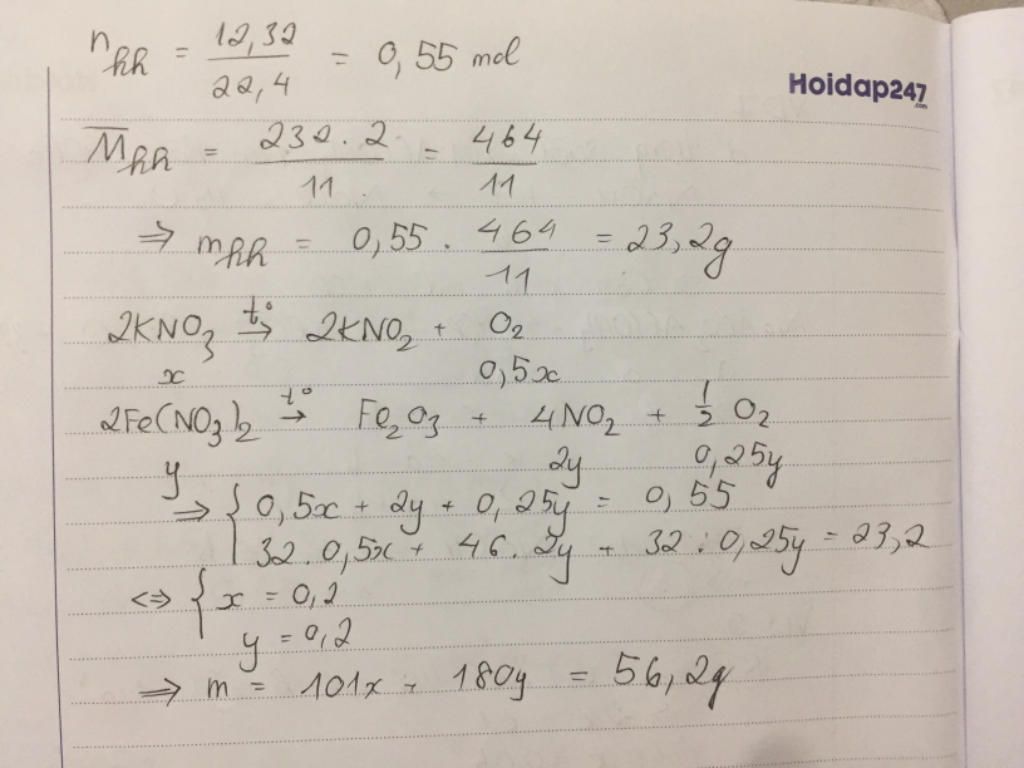 n_hh = 12,32/22,4 = 0,55 mol
Hoidap247.com
M̅_hh = 232.2/11 = 464/11
⇒ m_hh = 0,55 . 464/11 = 23,2g
2KNO₃ t°→ 2KNO₂ + O₂
x 0,5x
2Fe(NO₃)₂ t°→ Fe₂O₃ + 4NO₂ + 1/2 O₂
y 2y 0,25y
⇒ { 0,5x + 2y + 0,25y = 0,55
32.0,5x + 46.2y + 32:0,25y = 23,2
⇔ { x = 0,2
y = 0,2
⇒ m = 101x + 180y = 56,2g